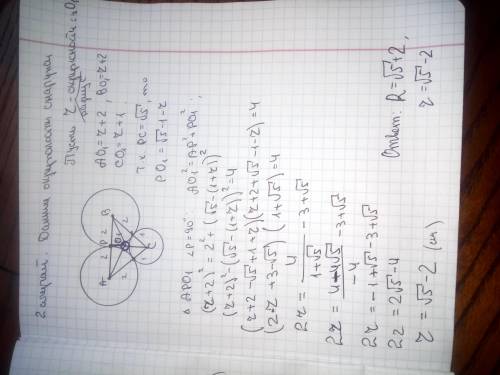 2 случай. Данные окружности снаружи
Пусть r - окружности с ц. O₁
радиус
AO₁ = r+2, BO₁ = r+2
CO₁ = r+1
т.к. PC = √5, то
PO₁ = √5 - 1 - r
A P B
2 2
2 2
O₁
1 1
C
Δ APO₁ ∠P = 90° AO₁² = AP² + PO₁²;
(r+2)² = 2² + (√5 - (1+r))²
(r+2)² - (√5 - (1+r))² = 4
(r+2 - √5 + 1 + r)(r+2 + √5 - 1 - r) = 4
(2r + 3 - √5)(1 + √5) = 4
2r = 4/(1+√5) - 3 + √5
2r = (4 - 4√5)/(-4) - 3 + √5
2r = -1 + √5 - 3 + √5
2r = 2√5 - 4
r = √5 - 2 (см)
Ответ: R = √5 + 2,
r = √5 - 2